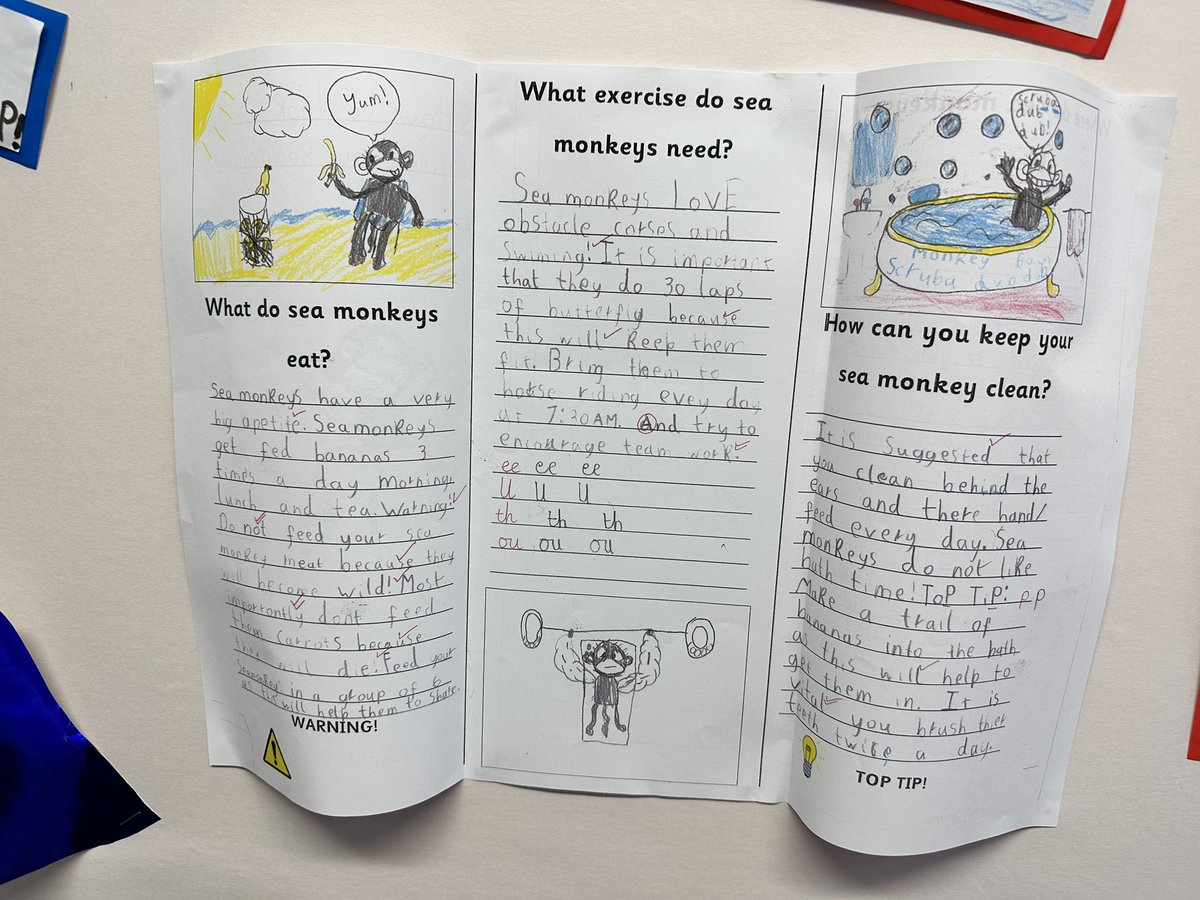 P!
Yum!
What do sea monkeys
eat?
Sea monkeys have a very
big apetite. Seamonkeys
get fed bananas 3
times a day morning,
lunch and tea. Warning!
Do not feed your sea
monkey meat because they
will become wild! Most
importantly dont feed
them carrots because
they will die! Feed your
Seamonkeys in a group of 6
as this will help them to share.
WARNING!
What exercise do sea
monkeys need?
Sea monkeys LOVE
obstacle corses and
Swiming! It is important
that they do 30 laps
of butterfly because
this will keep them
fit. Bring them to
hotse riding evey day
at 7:30AM. And try to
encourage team work.
ee ee ee
U U U
th th th
ou ou ou
scruba
dub
dub!
Monkey fun
Scruba dub dub
How can you keep your
sea monkey clean?
It is suggested that
you clean behind the
ears and there hand/
feed every day. Sea
monkeys do not like
bath time! ToP TiP: p p
Make a trail of
bananas into the bath
as this will help to
get them in. It is
vital you brush thier
teeth twice a day.
TOP TIP!